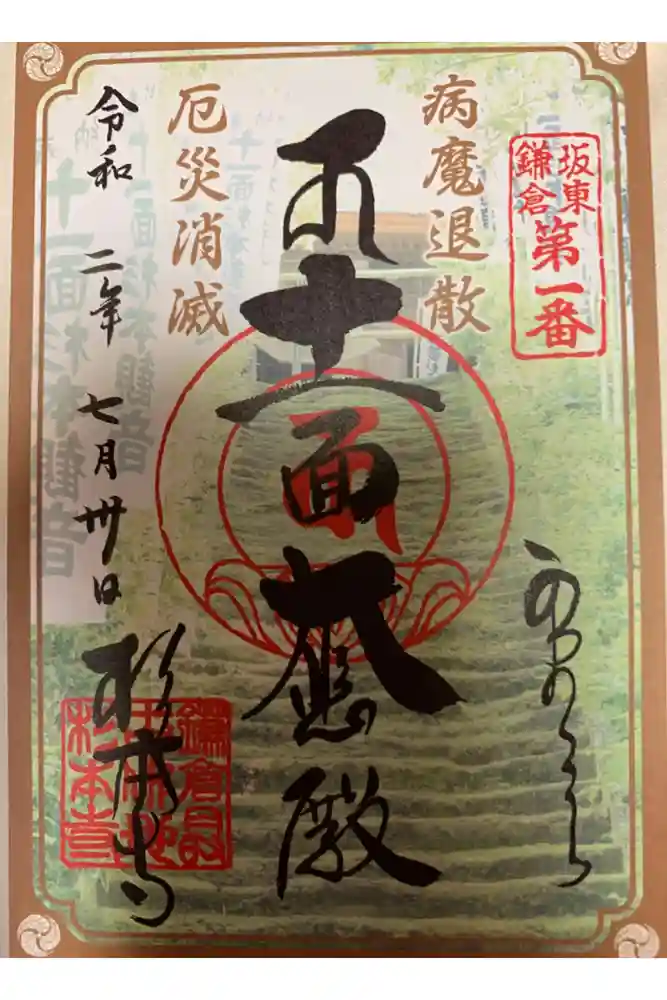 坂東
鎌倉
第一番
奉拝
病魔退散
十一面大悲殿
厄災消滅
令和 二年 七月 卅日
杉本寺
十一面杉本観音